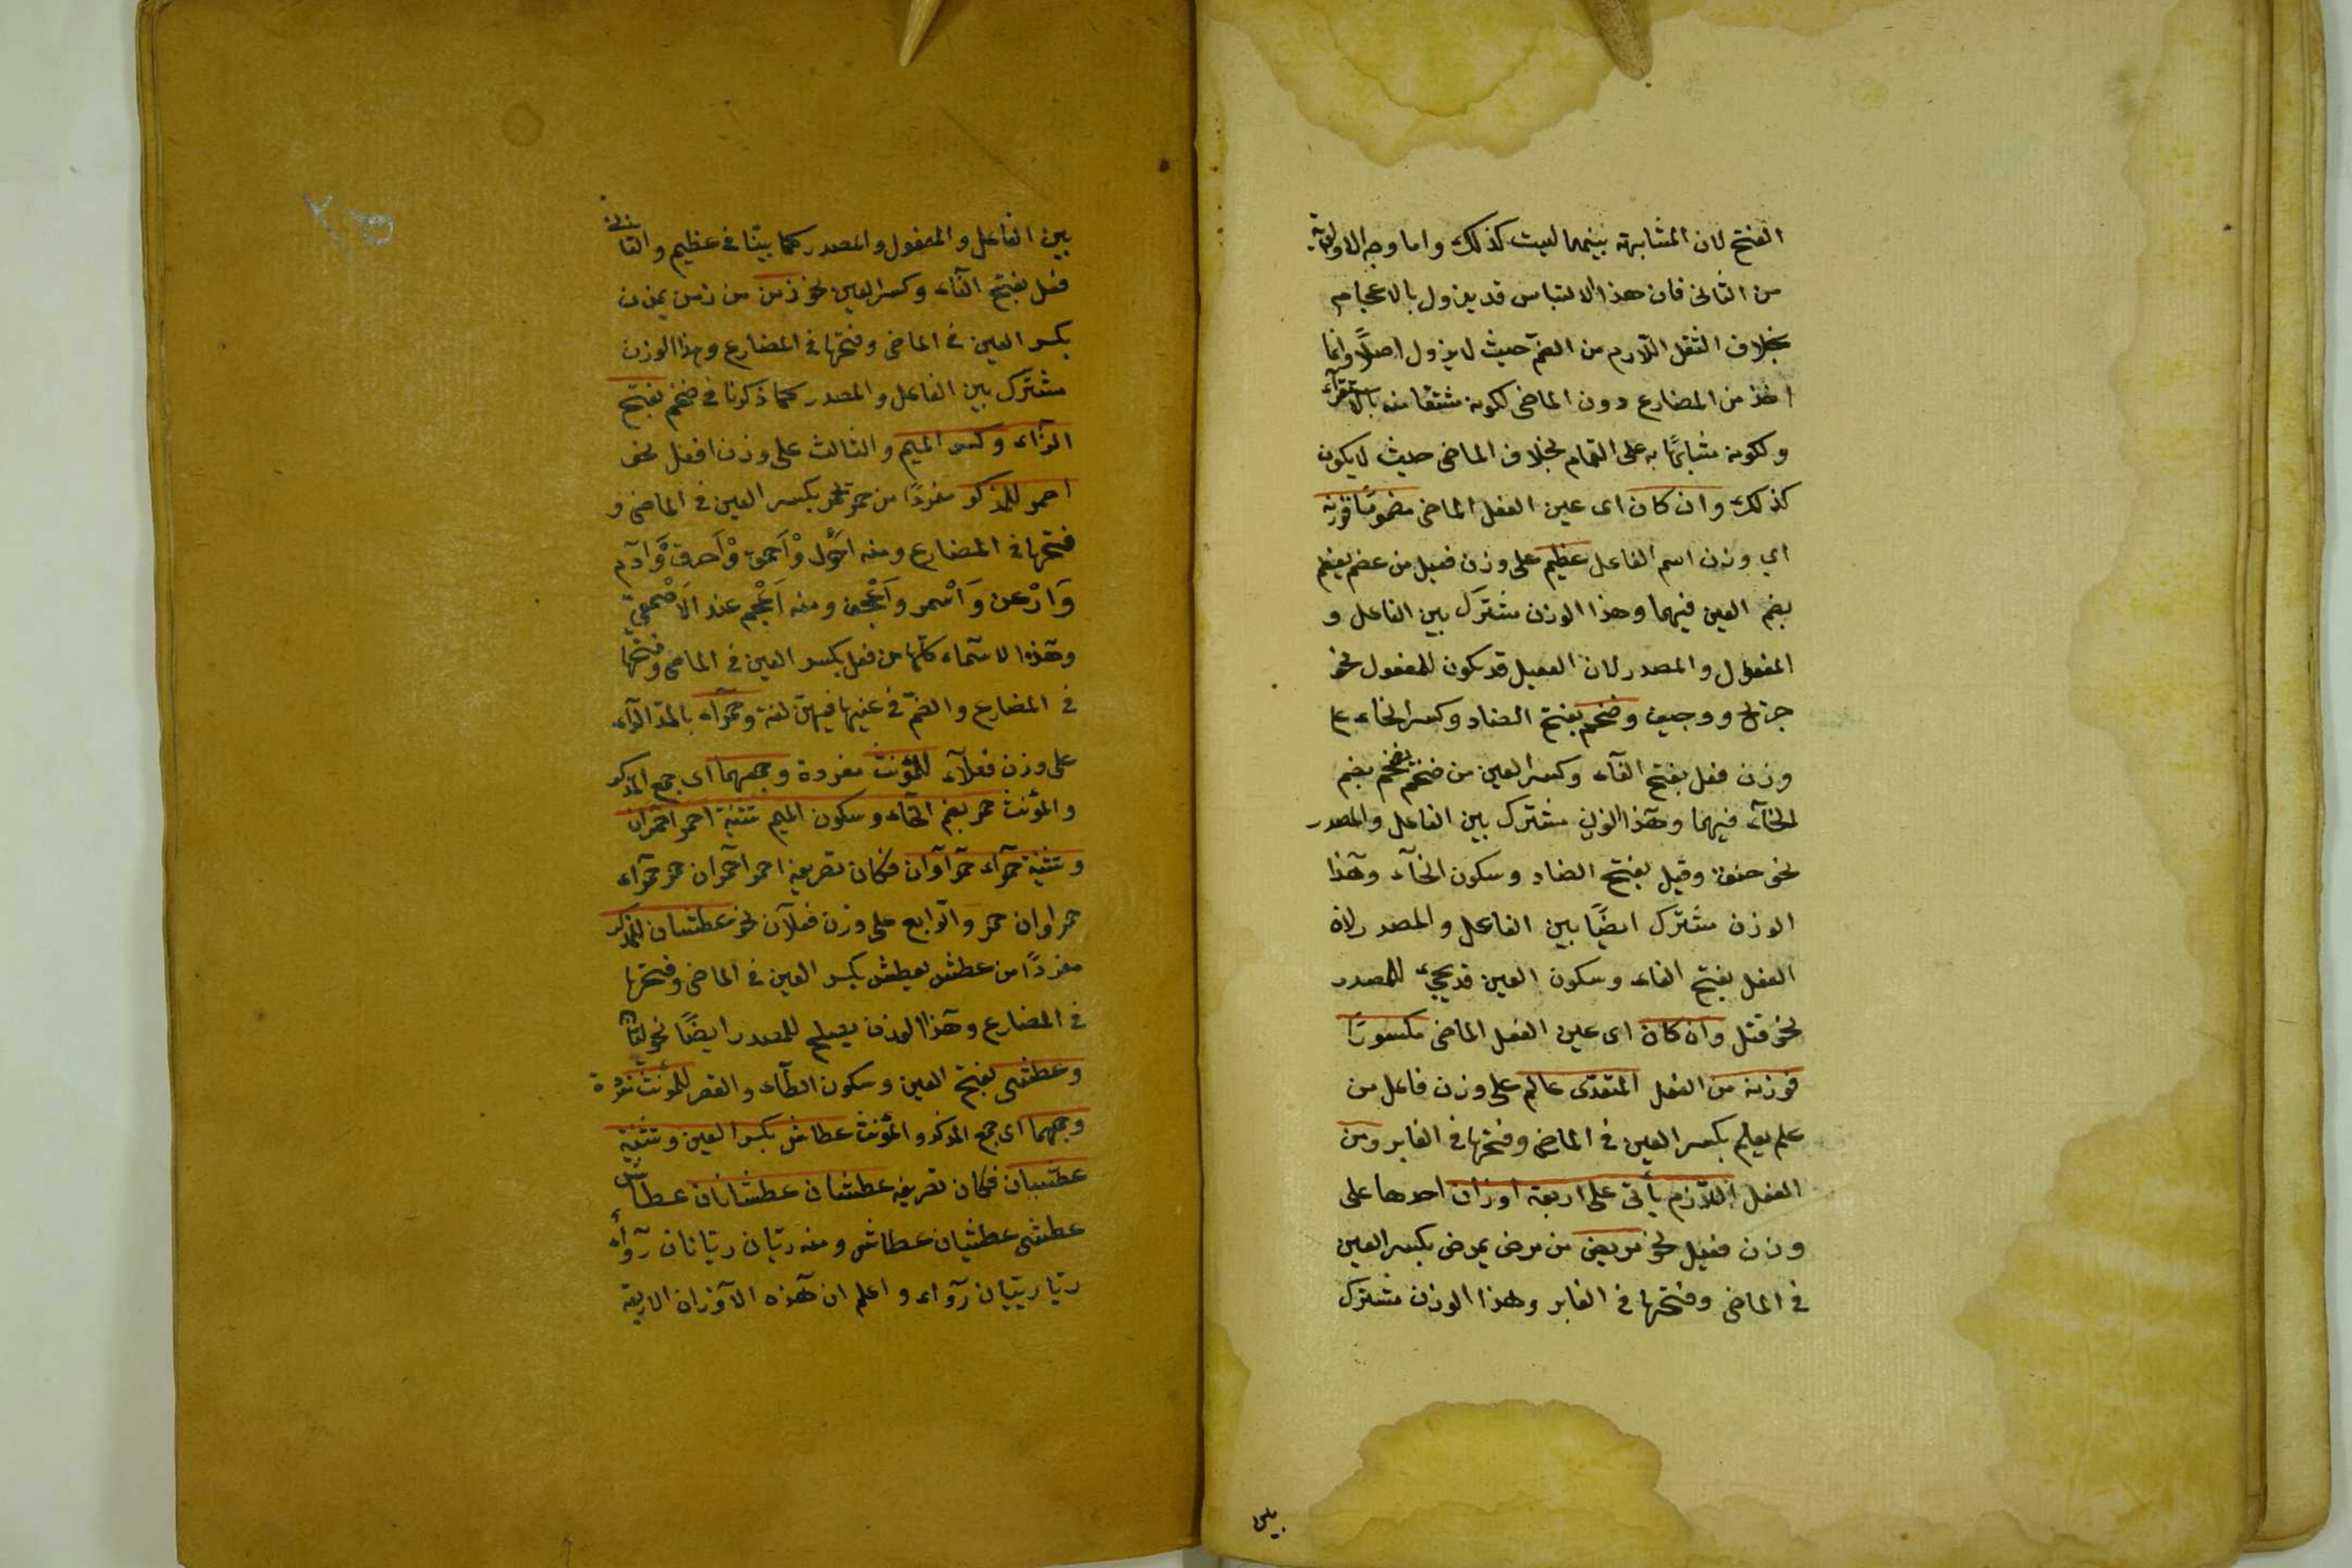 الفتح لان المشابهة بينهما ليست كذلك واما وجه الاولوية
من الثانى فان هذا الالتباس قد يزول بالاعجام
بخلاف الثقل اللازم من الضم حيث لا يزول اصلاً وانما
اخذ من المضارع دون الماضى لكونه مشتقا منه بالاستقراء
ولكونه مشابهًا به على التمام بخلاف الماضى حيث لا يكون
كذلك وان كان اى عين الفعل الماضى مضمومًا فوزنه
اى وزن اسم الفاعل عظيم على وزن فعيل من عضم يعظم
بضم العين فيهما وهذا الوزن مشترك بين الفاعل و
المفعول والمصدر لان الفعيل قد يكون للمفعول نحو
جريح ووجيف وضخم بفتح الضاد وكسر الخاء على
وزن فعل بفتح الفآء وكسر العين من ضخم يضخم بضم
الخآء فيهما وهذا الوزن مشترك بين الفاعل والمصدر
نحو خنق وقيل بفتح الضاد وسكون الخآء وهذا
الوزن مشترك ايضًا بين الفاعل والمصدر لان
الفعل بفتح الفاء وسكون العين قد يجىء للمصدر
نحو قتل وان كان اى عين الفعل الماضى مكسورًا
فوزنه من الفعل المتعدّى عالم على وزن فاعل من
علم يعلم بكسر العين فى الماضى وفتحها فى الغابر ومن
الفعل اللازم يأتى على اربعة اوزان احدها على
وزن فعيل نحو مريض من مرض يمرض بكسر العين
فى الماضى وفتحها فى الغابر وهذا الوزن مشترك
بين
بين الفاعل والمفعول والمصدر كما بيّنا فى عظيم والثانى
فعل بفتح الفآء وكسر العين نحو زمن من زمن يزمن
بكسر العين فى الماضى وفتحها فى المضارع وهذا الوزن
مشترك بين الفاعل والمصدر كما ذكرنا فى ضخم بفتح
الزآء وكسر الميم والثالث على وزن افعل نحو
احمر للمذكر مفردًا من حمر يحمر بكسر العين فى الماضى و
فتحها فى المضارع ومنه احول وْاَحمق وْاَخرق وَآدَم
وَاَرْعن وَاَسْمر واَعْجف ومنه اَعْجم عند الاَصْمعىّ
وهذه الاسمآء كلّها من فعل بكسر العين فى الماضى وفتحها
فى المضارع والضمّ فى عينها فيهنّ لغة وحمرآء بالمدّ الرّآء
على وزن فعلآء للمؤنث مفردة وجمعهما اى جمع المذكر
والمؤنث حمر بضم الحآء وسكون الميم تثنية احمر احمران
وتثنية حمرآء حمراوان فكان تصريفه احمر احمران حمر حمرآء
حمراوان حمر والرابع على وزن فعلآن نحو عطشان للمذكر
مفردًا من عطش يعطش بكسر العين فى الماضى وفتحها
فى المضارع وهذا الوزن يصلح للمصدر ايضًا نحو ليّان
وعطشى بفتح العين وسكون الطآء والقصر للمؤنث مفردة
وجمعهما اى جمع المذكر والمؤنث عطاش بكسر العين وتثنية
عطشيان فكان تصريفه عطشان عطشانان عطاش
عطشى عطشيان عطاش ومنه ريّان ريّانان رِوآء
ريّا ريّيان رِوآء واعلم ان هذه الاوزان الاربعة